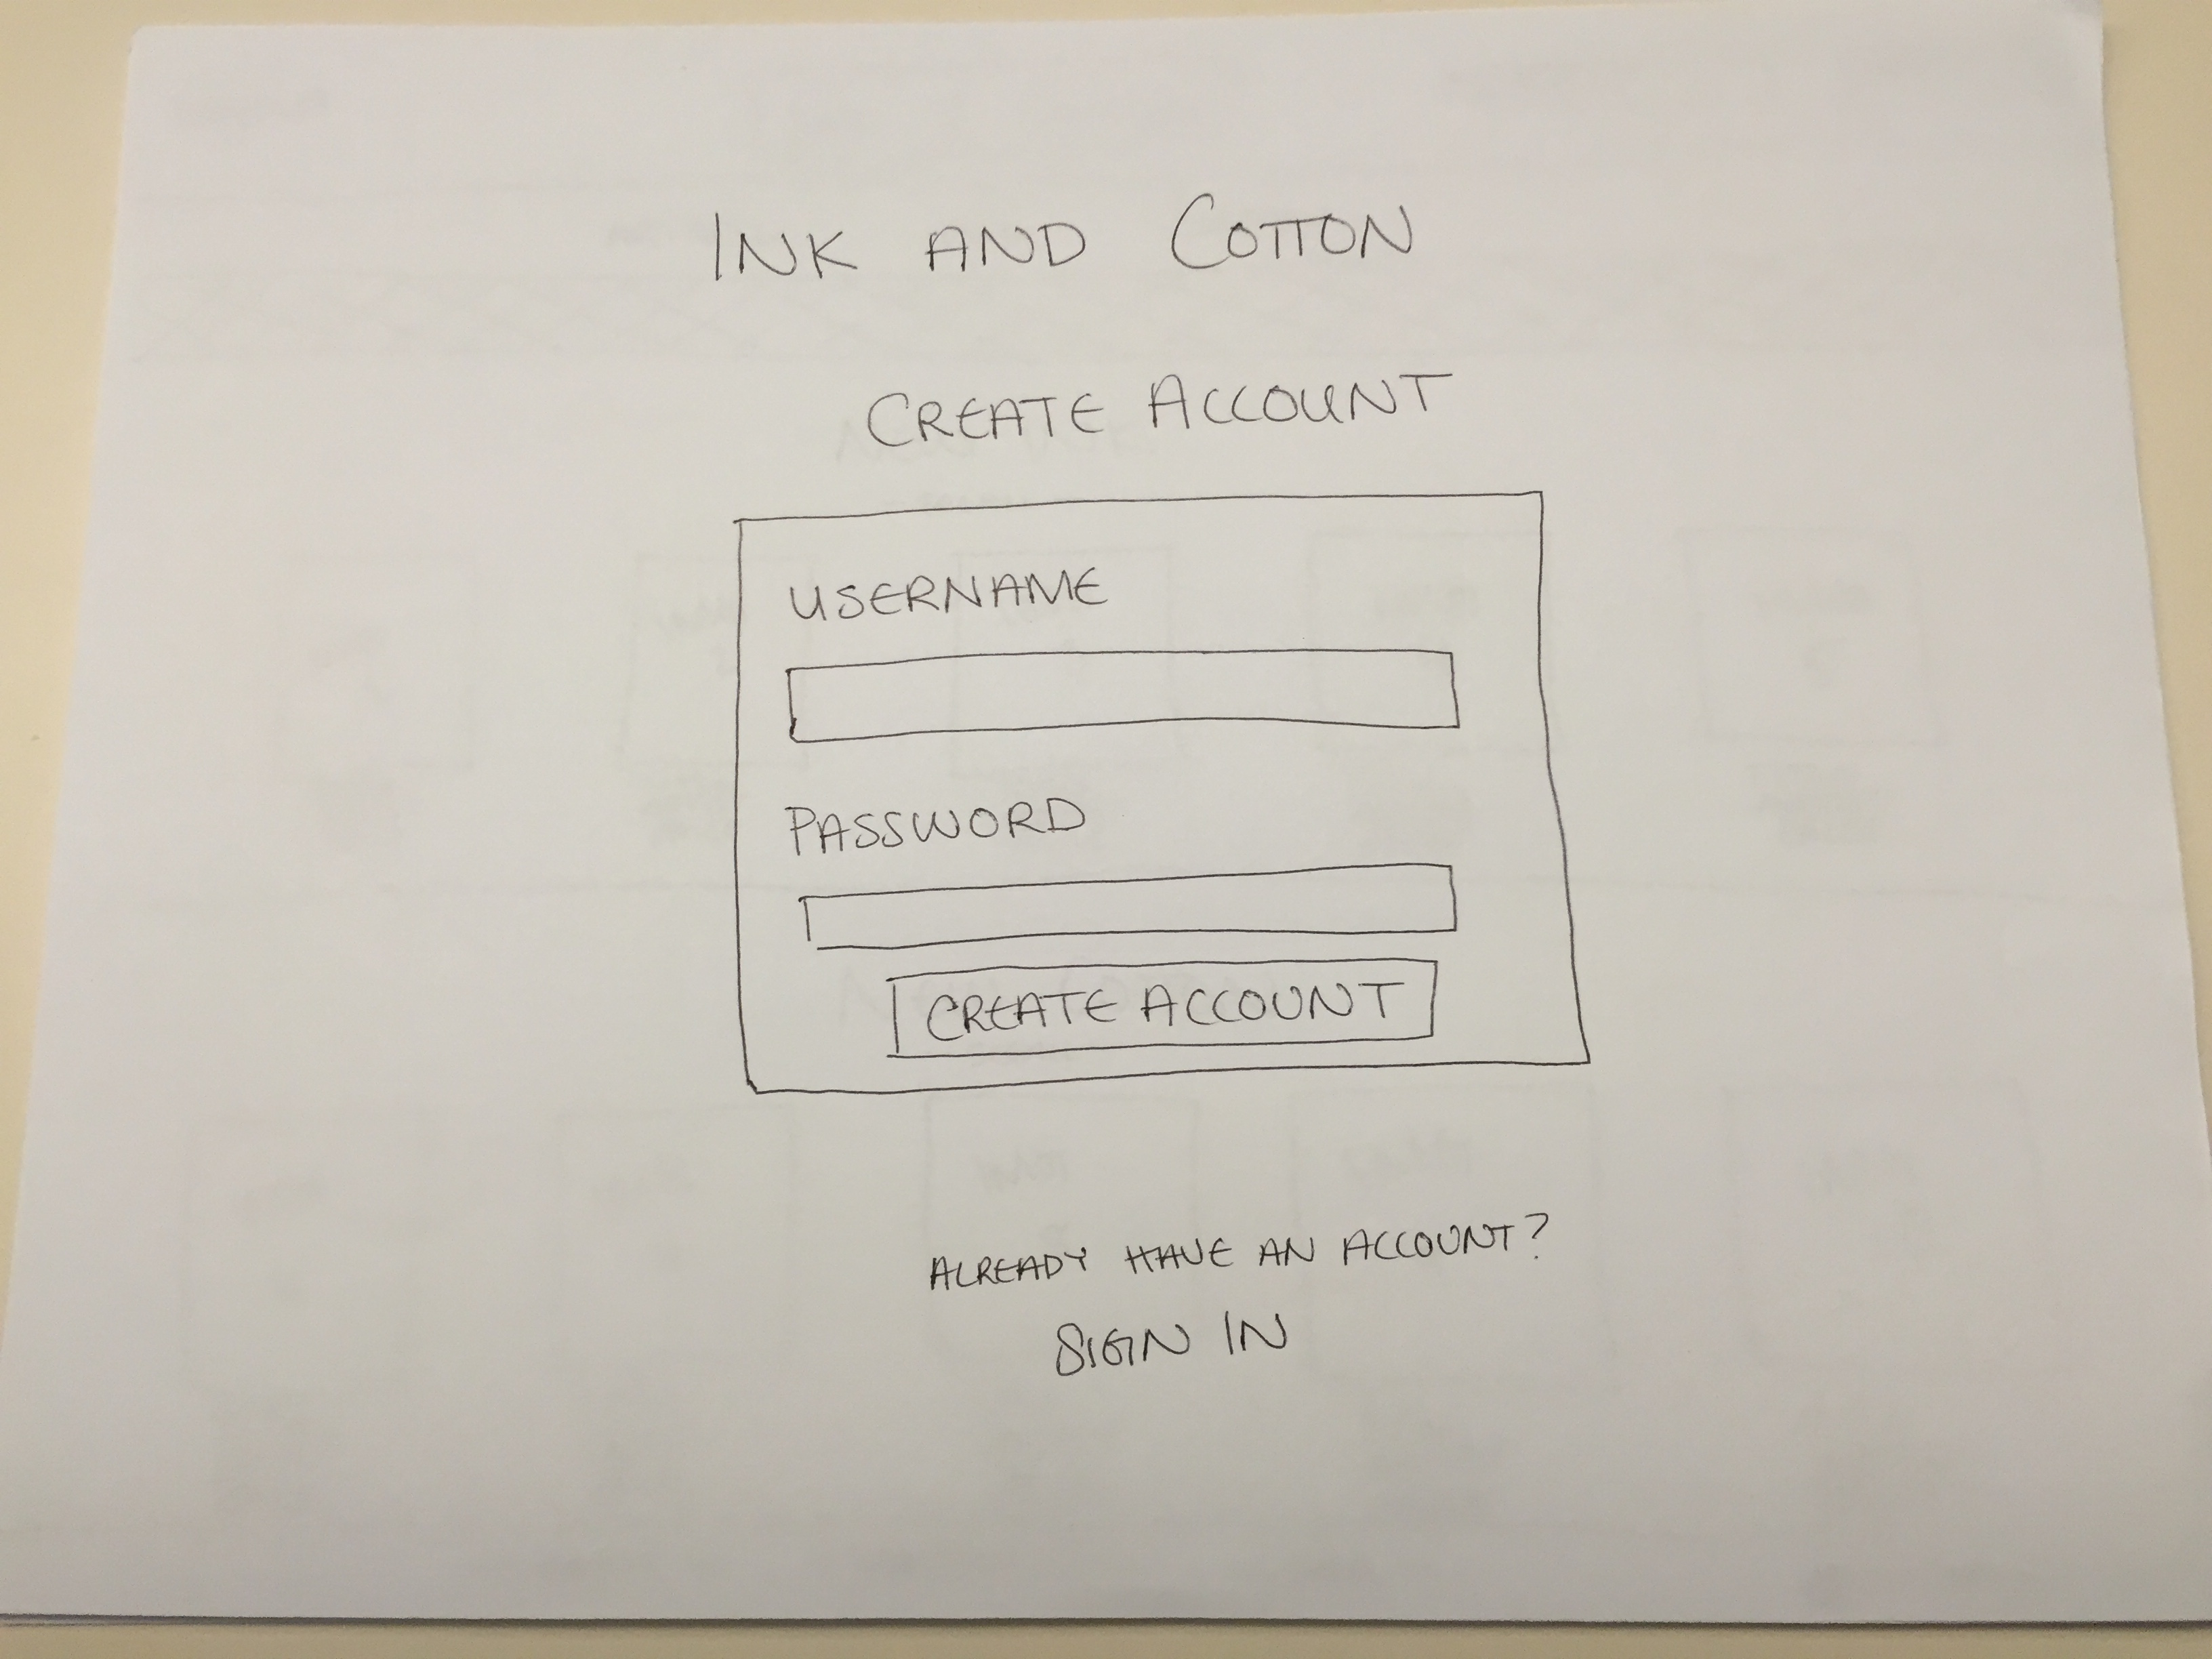 INK AND COTTON
CREATE ACCOUNT
USERNAME
PASSWORD
CREATE ACCOUNT
ALREADY HAVE AN ACCOUNT?
SIGN IN